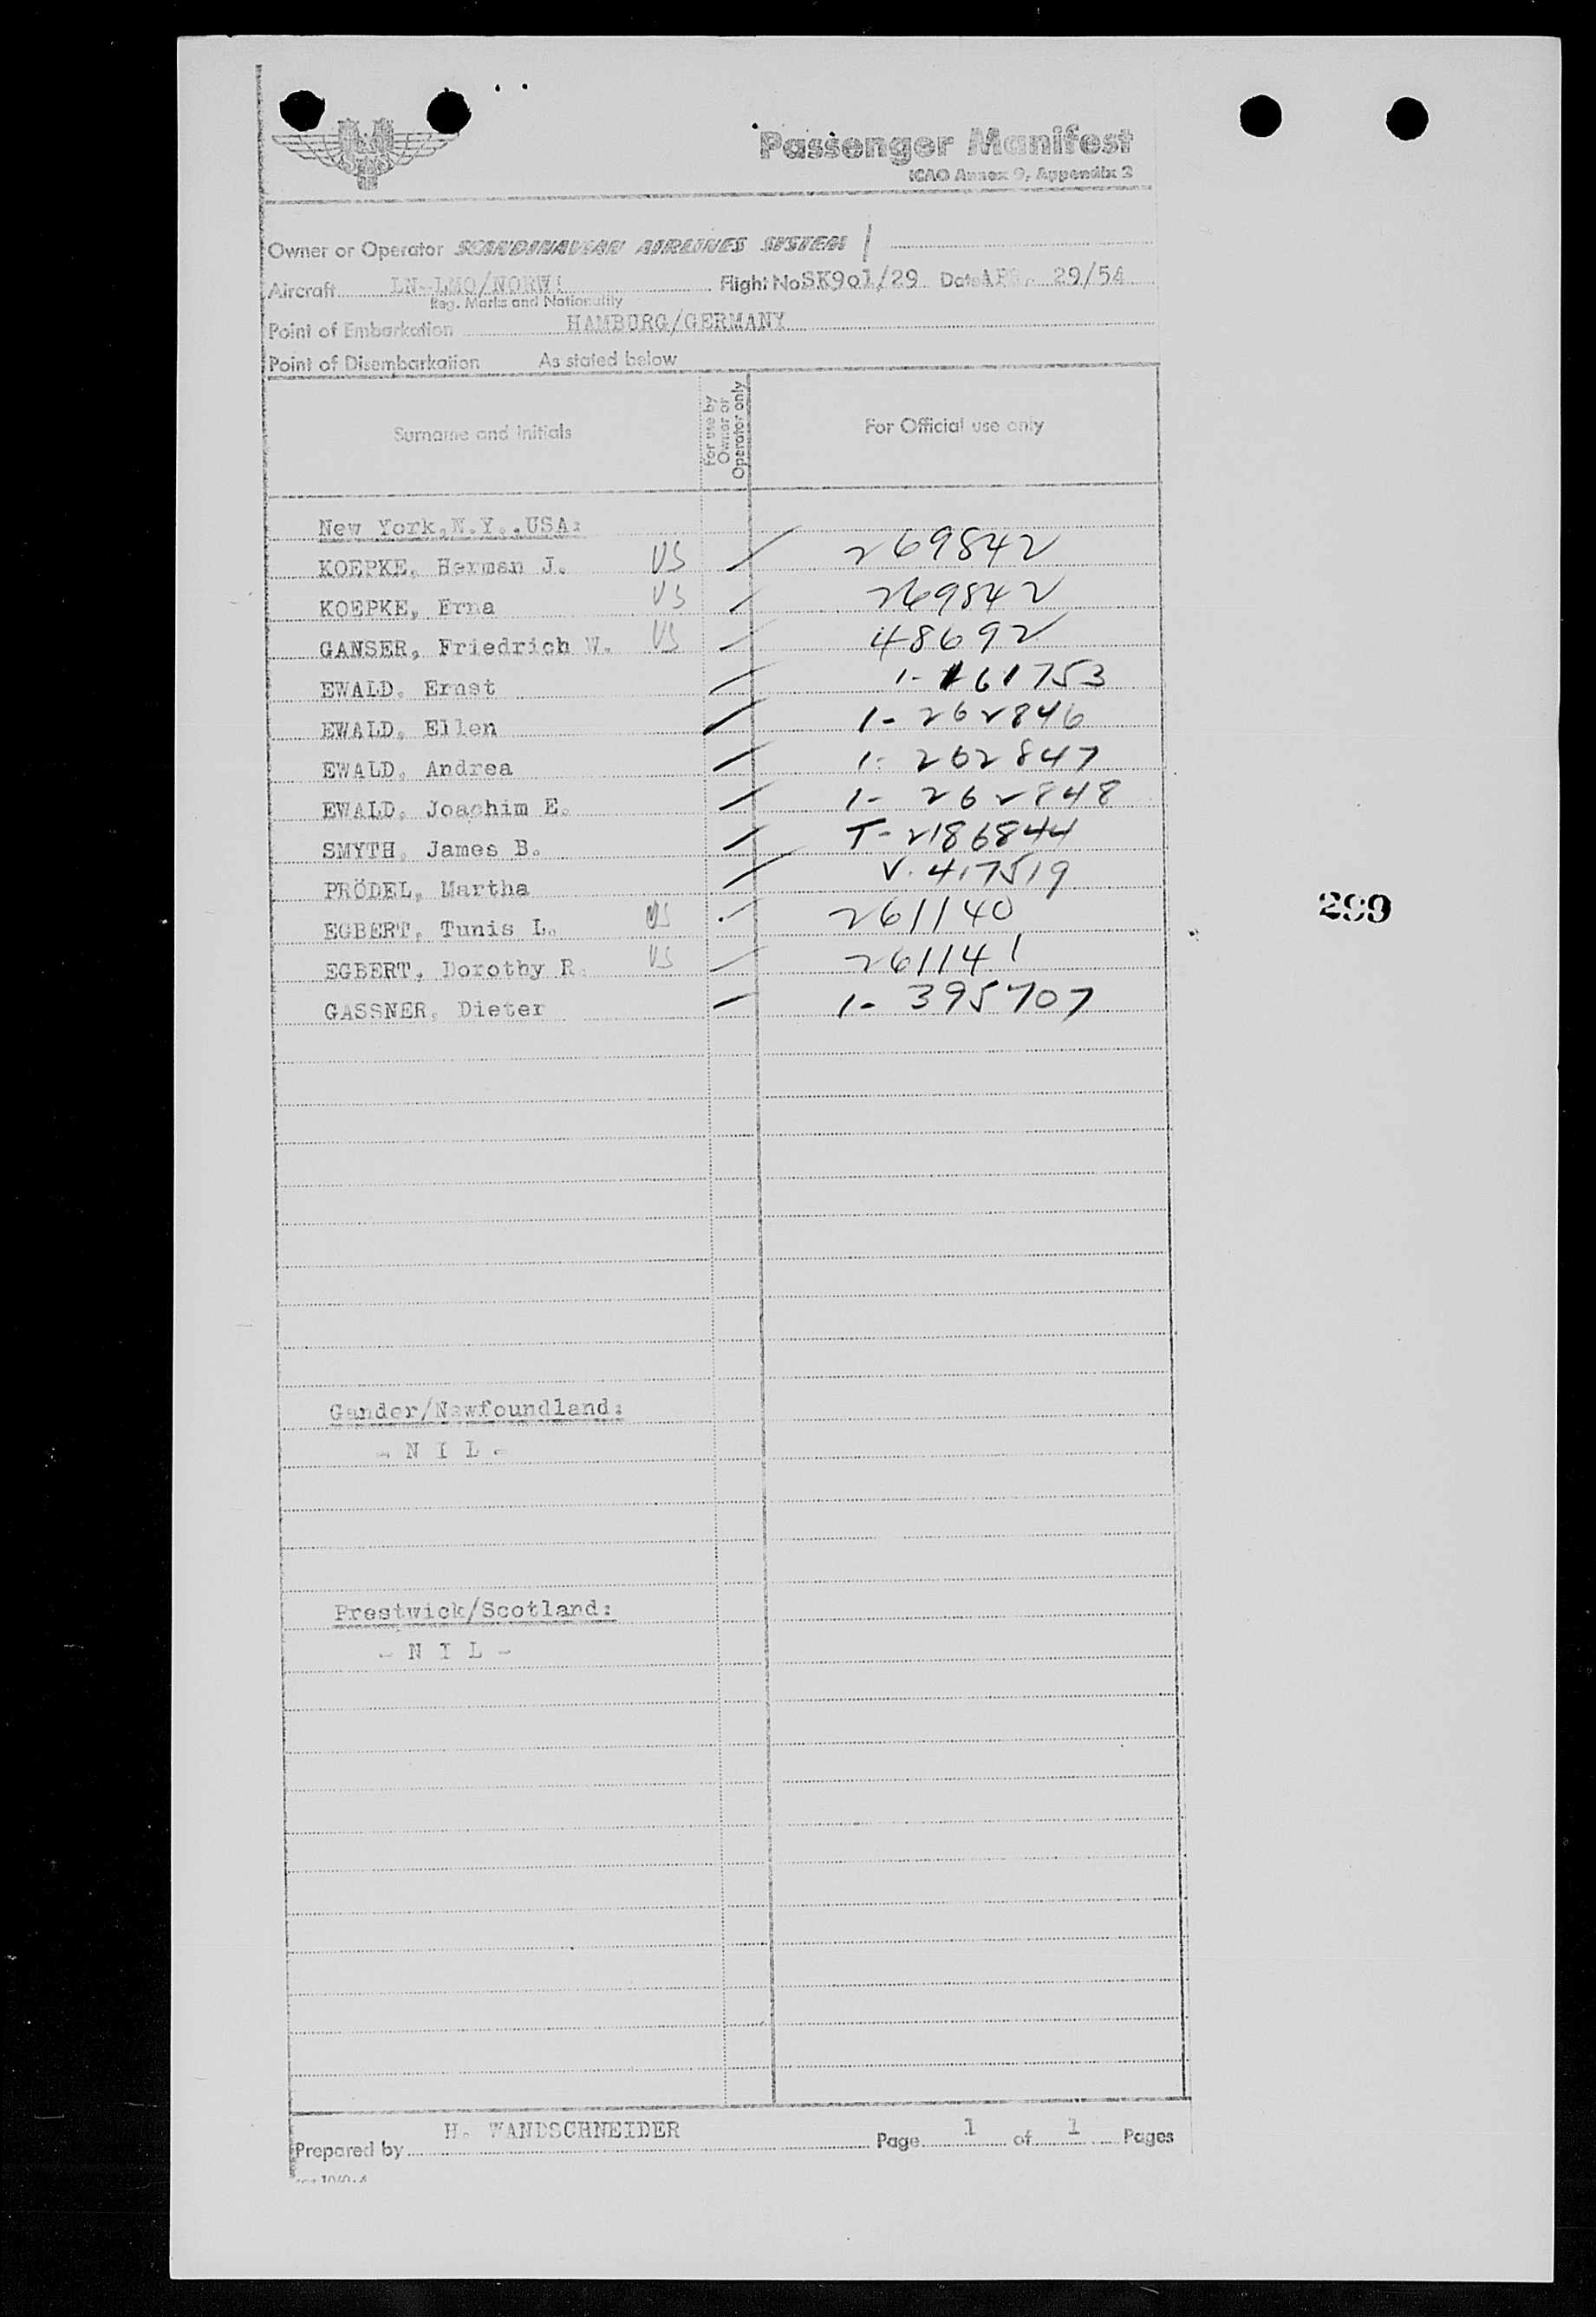 Passenger Manifest
ICAO Annex 9, Appendix 2
Owner or Operator SCANDINAVIAN AIRLINES SYSTEM
Aircraft LN-LMO/NORW. Flight No SK901/29 Date APR. 29/54
Reg. Marks and Nationality
Point of Embarkation HAMBURG/GERMANY
Point of Disembarkation As stated below
Surname and Initials For use by Owner or Operator only For Official use only
New York,N.Y..USA:
KOEPKE, Herman J. US 269842
KOEPKE, Erna US 269842
GANSER, Friedrich W. US 48692
EWALD, Ernst 1-161753
EWALD, Ellen 1-262846
EWALD, Andrea 1-262847
EWALD, Joachim E. 1-262848
SMYTH, James B. T-2186844
PRÖDEL, Martha V.417519
299
EGBERT, Tunis L. US 261140
EGBERT, Dorothy R. US 261141
GASSNER, Dieter 1-395707
Gander/Newfoundland:
- N I L -
Prestwick/Scotland:
- N I L -
Prepared by H. WANDSCHNEIDER Page 1 of 1 Pages